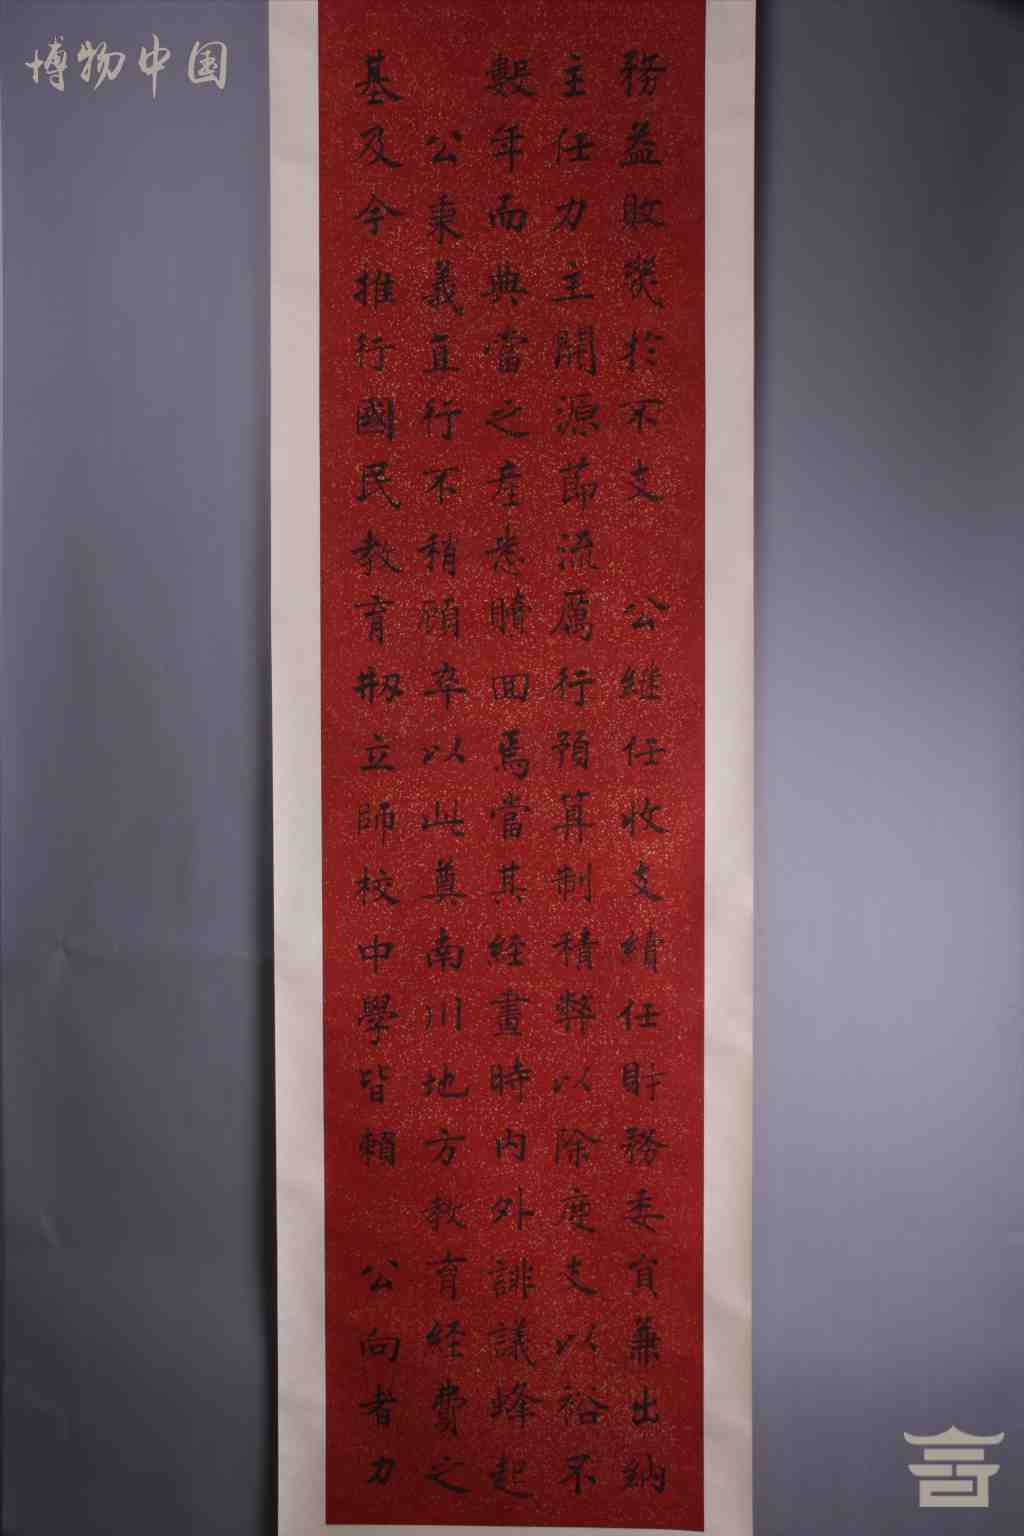 博物中国
務益敗熒於不支　公繼任收支續任財務委員兼出納
主任力主開源節流厲行預算制積弊以除度支以裕不
數年而典當之產悉贖回焉當其經畫時內外誹議蜂起
公秉義直行不稍顧卒以此奠南川地方教育經費之
基及今推行國民教育刱立師校中學皆賴　公向者力